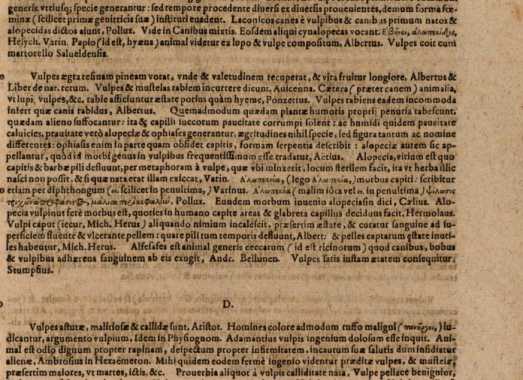 generis vtriusq; specie generantur: sed tempore procedente diuersi ex diuersis prouenientes, demum forma fe-
minæ (scilicet primæ genitricis suæ) instituti euadent. Laconicos canes è vulpibus & canibus primum natos &
alopecidas dictos aiunt, Pollux. Vide in Canibus mixtis. Eosdem aliqui cynalopecas vocant.
Hesych. Varin. Papio (id est, hyæna) animal videtur ex lupo & vulpe compositum, Albertus. Vulpes coit cum
martorello
Vulpes ægra resinam pineam vorat, vnde & valetudinem recuperat, & vita fruitur longiore. Albertus &
Liber de nat. rerum. Vulpes & mustelas rabiem incurrere dicunt, Auicenna. Cætera (præter canem) animalia,
vt lupi, vulpes, &c. rabie afficiuntur æstate potius quàm hyeme, Ponzettus. Vulpes rabiens eadem incommoda
infert quæ canis rabidus, Albertus. Quemadmodum quædam plantæ humoris proprij penuria tabescunt:
quædam alieno suffocantur: ita & capilli succorum paucitate corrumpi solent: ac humidi quidem paucitate
caluicies, prauitate verò alopeciæ & ophiases generantur, ægritudines nihil specie, sed figura tantum ac nomine
differentes: ophiasis enim in parte quam obsidet capitis, formam serpentis describit: alopeciæ autem sic ap-
pellantur, quòd id morbi genus in vulpibus frequentissimum esse tradatur, Aetius. Alopecia, vitium est quo
capitis & barbæ pili defluunt, per metaphoram à vulpe, quæ vbi minxerit, locum sterilem facit, ita vt herba illic
nasci non possit, & si qua nata erat illam exiccat, Varin. (lego morbus capiti: scribitur
etiam per diphthongum ( scilicet in penultima,) Varinus. (malim in penultima)
Pollux. Eundem morbum inuenio alopeciasin dici, Cælius. Alo-
pecia vulpinum ferè morbus est, quoties in humano capite areas & glabreta capillus decidens facit, Hermolaus.
Vulpi caput (iecur, Mich. Herus) aliquando nimium incalescit, præsertim æstate, & curatur sanguine ad su-
perficiem fluente & vlcerante pellem: quare pili tum temporis defluunt, Albert: & pelles captarum æstate inuti-
les habentur, Mich. Herus. est animal generis ceccarum (id est ricinorum) quod canibus, bobus
& vulpibus adhærens sanguinem ab eis exugit, Andr. Bellunen. Vulpes satis iustam ætatem consequitur,
Stumpsius.
D.
Vulpes astutæ, malitiosæ & callidæ sunt. Aristot. Homines colore admodum ruffo maligni ( ) iu-
dicantur, argumento vulpium. Idem in Physiognom. Adamantius vulpis ingenium dolosum esse inquit. Ani-
mal est odio dignum propter rapinam, despectum propter infirmitatem, incautum suæ salutis dum insidiatur
alienæ, Ambrosius in Hexaemeron. Mihi quidem eodem fermè ingenio videntur præditæ vulpes, & mustelæ,
præsertim maiores, vt martes, ictis, &c. Prouerbia aliquot à vulpis calliditate nata. Vulpe pellace benignior,